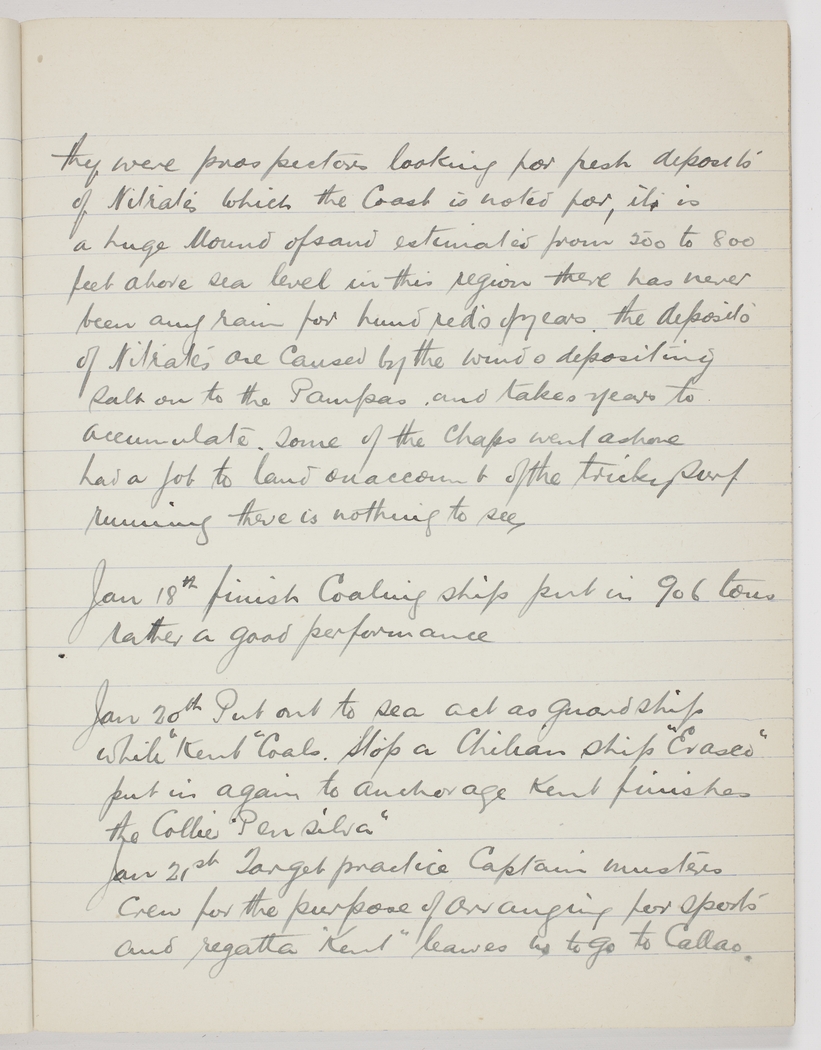 they were prospectors looking for fresh deposits
of Nitrates which the Coast is noted for, its is
a huge Mound of sand estimated from 500 to 800
feet above sea level in this region there has never
been any rain for hundreds of years. the deposits
of Nitrates are caused by the winds depositing
salt on to the Pampas. and takes years to
accumulate. Some of the Chaps went ashore
had a job to land on account of the tricky surf
running there is nothing to see,
Jan 18th finish Coaling ship put in 906 tons
rather a good performance
Jan 20th Put out to sea act as guardship
while "Kent" Coals. Stop a Chilian ship "Eraseo"
put in again to anchorage Kent finishes
the Collie "Pensilva"
Jan 21st Target practice Captain musters
Crew for the purpose of arranging for sports
and regatta "Kent" leaves us to go to Callao.